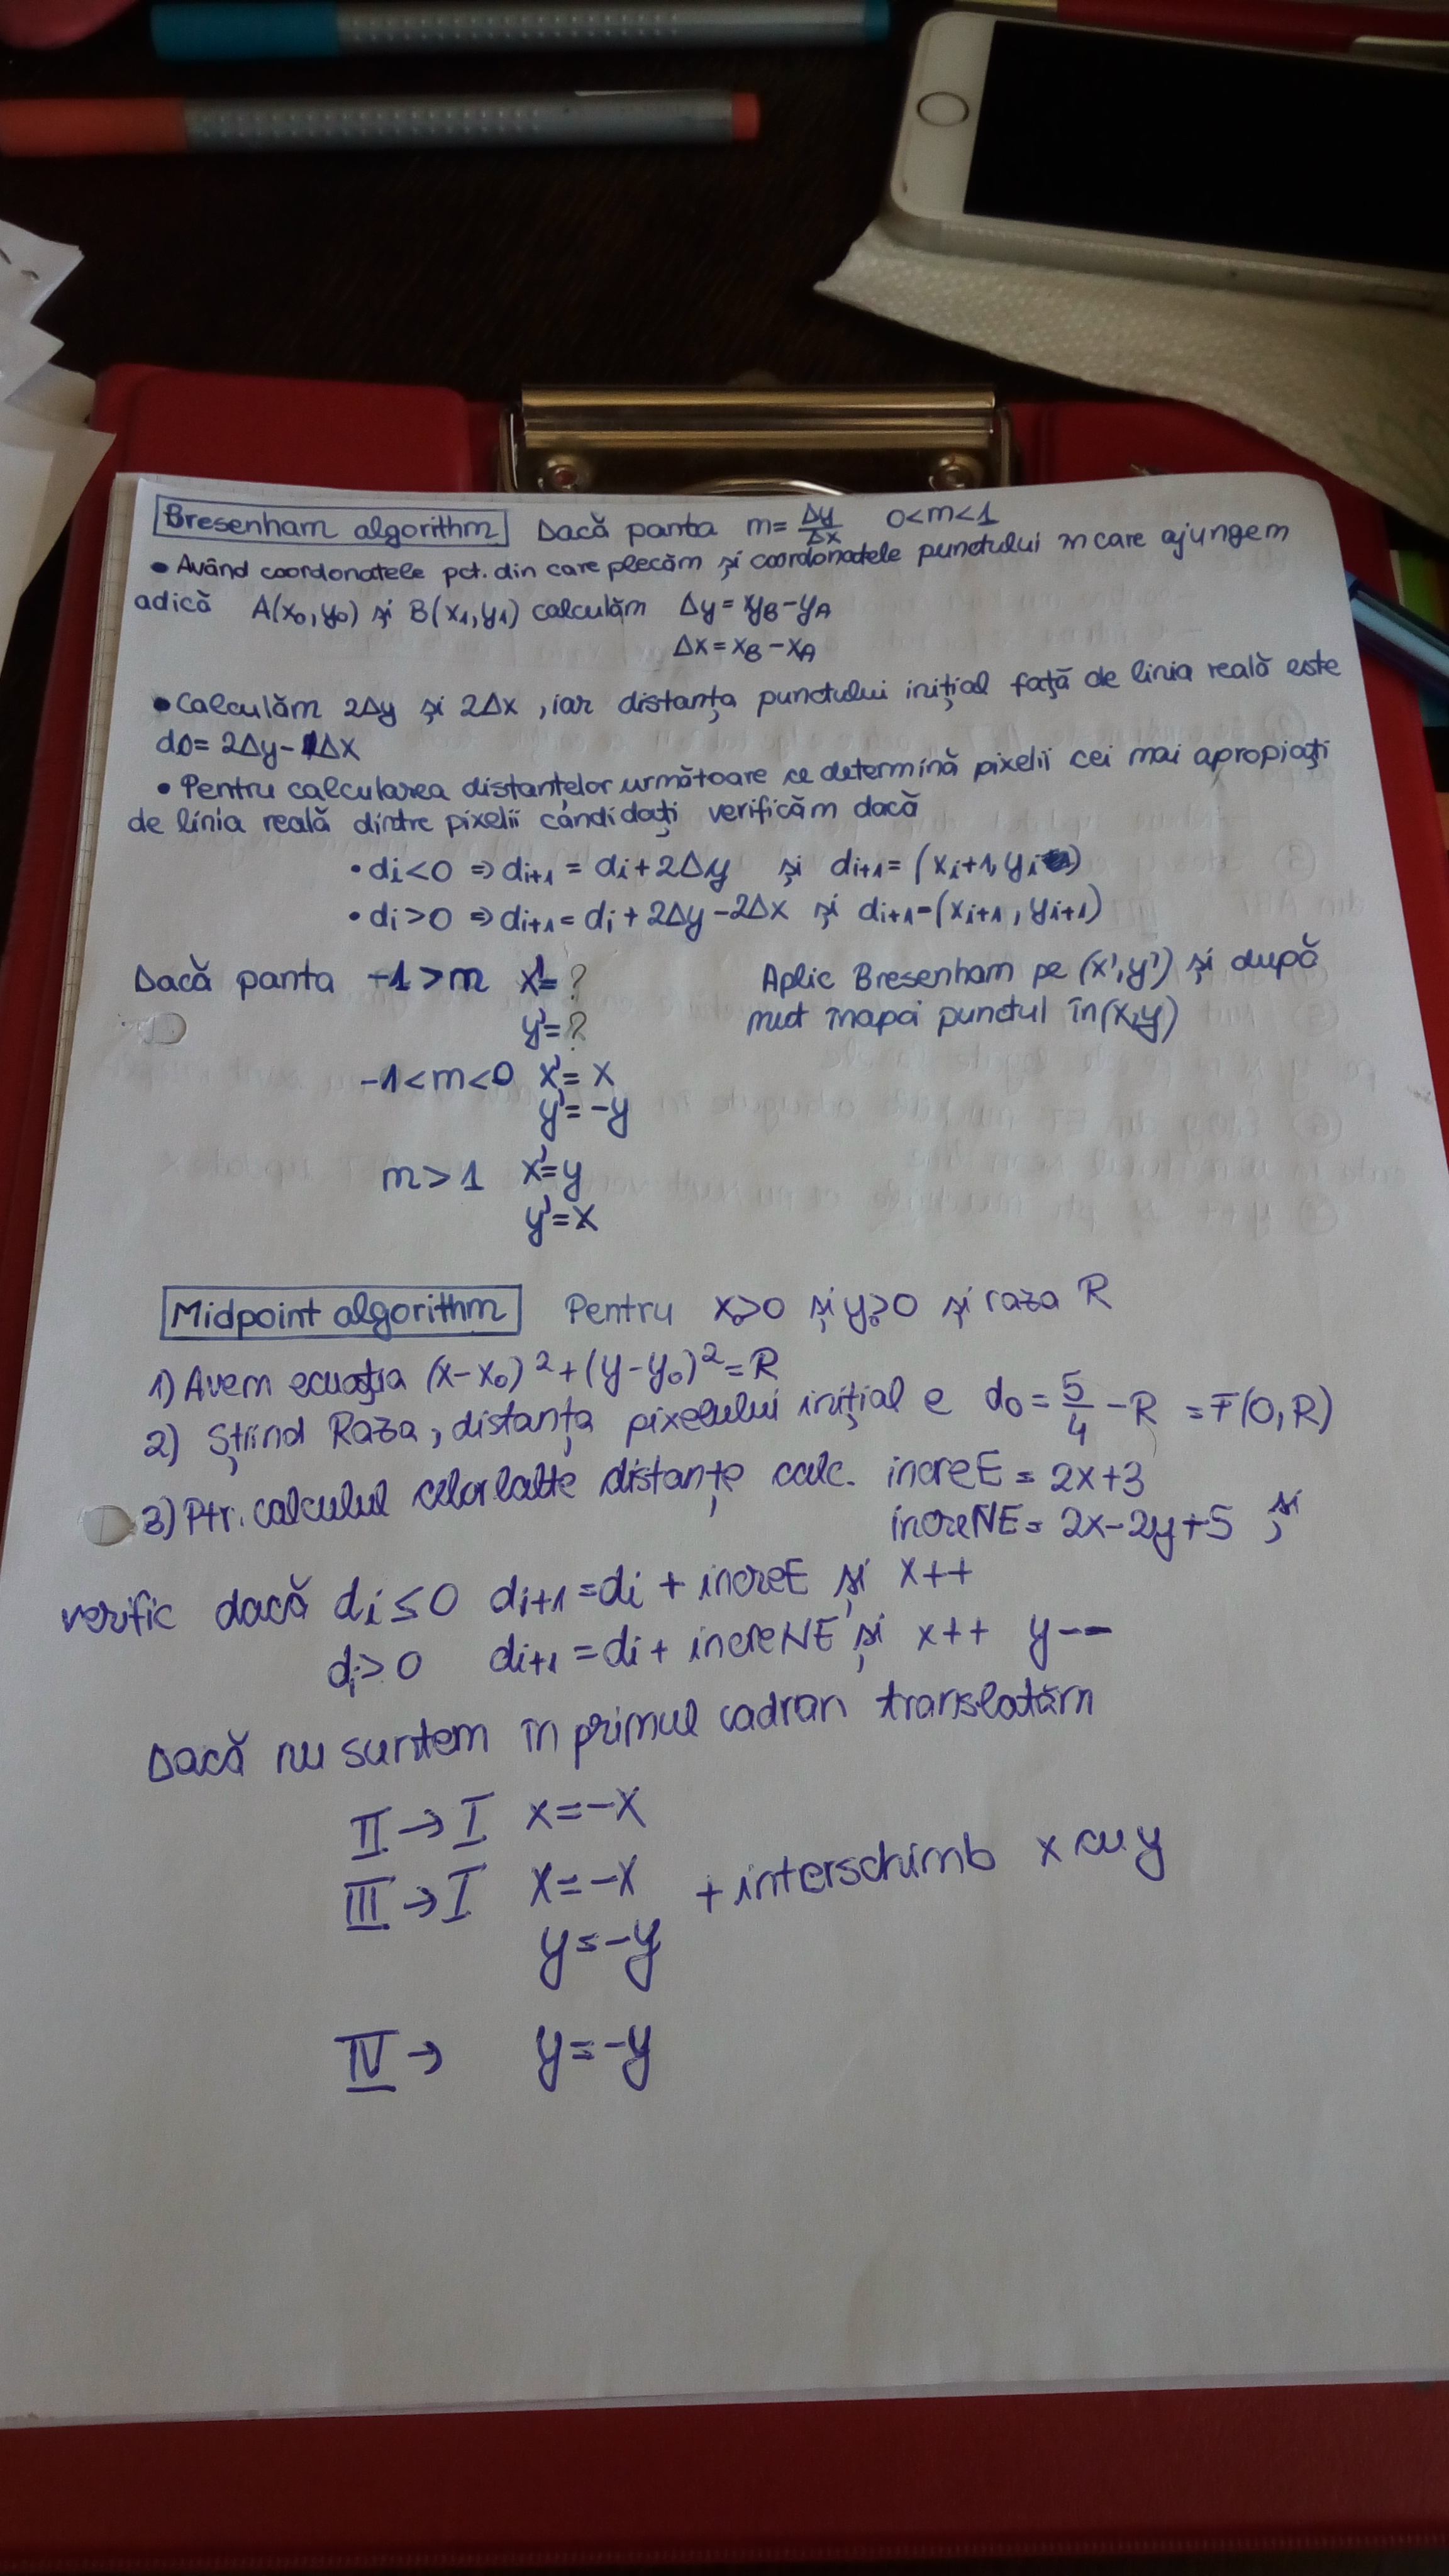 Bresenham algorithm Dacă panta m= Δy/Δx 0<m<1
• Având coordonatele pct. din care plecăm și coordonatele punctului în care ajungem
adică A(x₀,y₀) și B(x₁,y₁) calculăm Δy = yB-yA
Δx = xB-xA
• Calculăm 2Δy și 2Δx, iar distanța punctului inițial față de linia reală este
d0= 2Δy-1Δx
• Pentru calcularea distanțelor următoare se determină pixelii cei mai apropiați
de linia reală dintre pixelii candidați verificăm dacă
• di<0 => di+1 = di+2Δy și di+1= (xi+1, yi)
• di>0 => di+1= di+2Δy-2Δx și di+1=(xi+1, yi+1)
Dacă panta -1>m x'=? Aplic Bresenham pe (x',y') și după
y'=? mut înapoi punctul în (x,y)
-1<m<0 x'= x
y'= -y
m>1 x'=y
y'=x
Midpoint algorithm Pentru x₀>0 și y₀>0 și raza R
1) Avem ecuația (x-x₀)²+(y-y₀)²=R
2) Știind Raza, distanța pixelului inițial e d0 = 5/4 -R = F(0,R)
3) Ptr. calculul celorlalte distanțe calc. increE = 2x+3
increNE= 2x-2y+5 și
verific dacă di ≤0 di+1=di + increE și x++
di>0 di+1 =di+ increNE și x++ y--
Dacă nu suntem în primul cadran translatăm
II → I x=-x
III → I x=-x + interschimb x cu y
y=-y
IV → y=-y